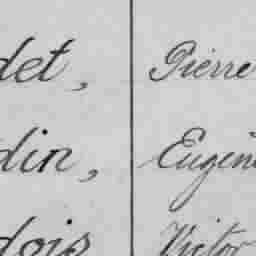 det, Pierre
din, Eugèn
dois Victor